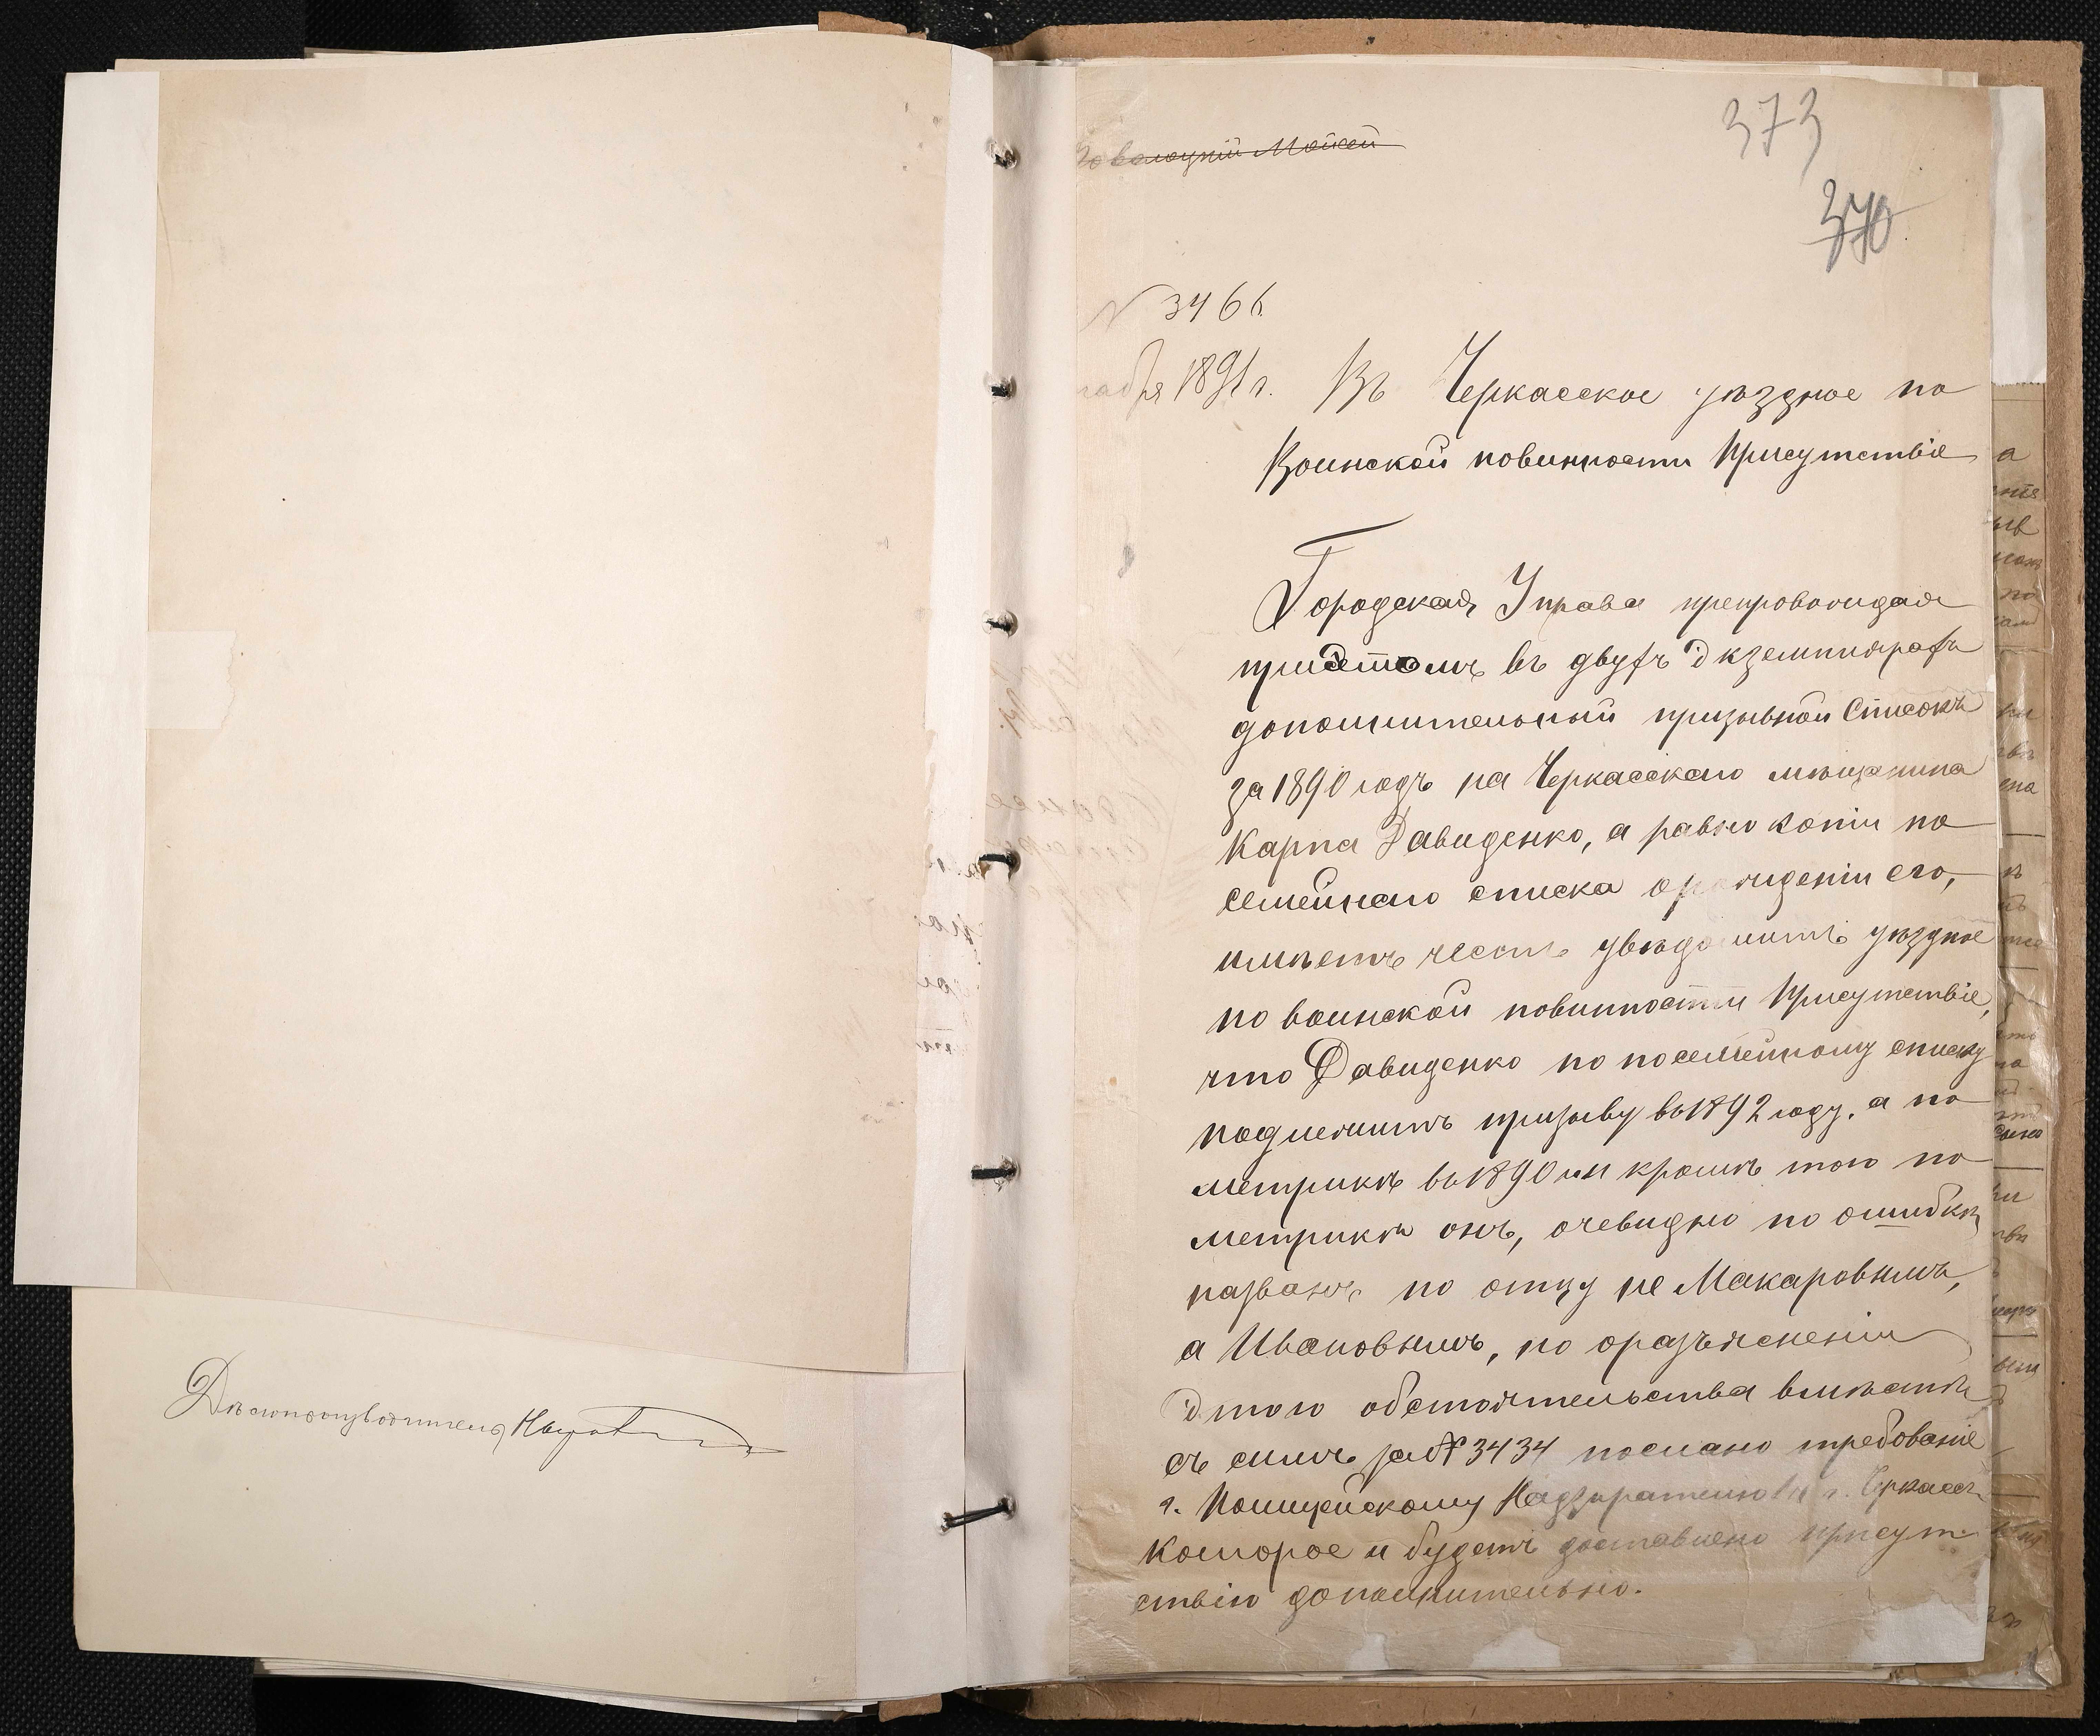 Дѣлопроизводитель
Моисей
373
370
№ 3466
1891 г. Въ Черкасское уѣздное по
Воинской повинности Присутствіе
Городская Управа препровождая
приэтомъ въ двухъ экземплярахъ
дополнительный призывной списокъ
за 1890 годъ на Черкасскаго мѣщанина
Карпа Давиденко, а равно копіи по
семейнаго списка о рожденіи его,
имѣетъ честь увѣдомить уѣздное
по воинской повинности Присутствіе,
что Давиденко по посемейному списку
подлежитъ призыву въ 1892 году, а по
метрикѣ въ 1890 и кромѣ того по
метрикѣ онъ, очевидно по ошибкѣ
названъ по отцу не Макаровымъ,
а Ивановымъ, но о разъясненіи
этого обстоятельства вмѣстѣ
съ симъ за № 3434 послано требованіе
г. Полицейскому Надзирателю г. Черкассъ
которое и будетъ доставлено присут-
ствію дополнительно.